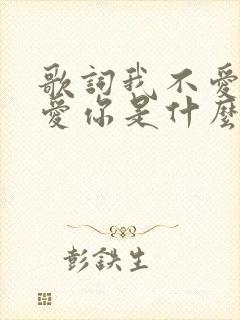 歌詞我不愛
愛你是什麼
彭鉄生